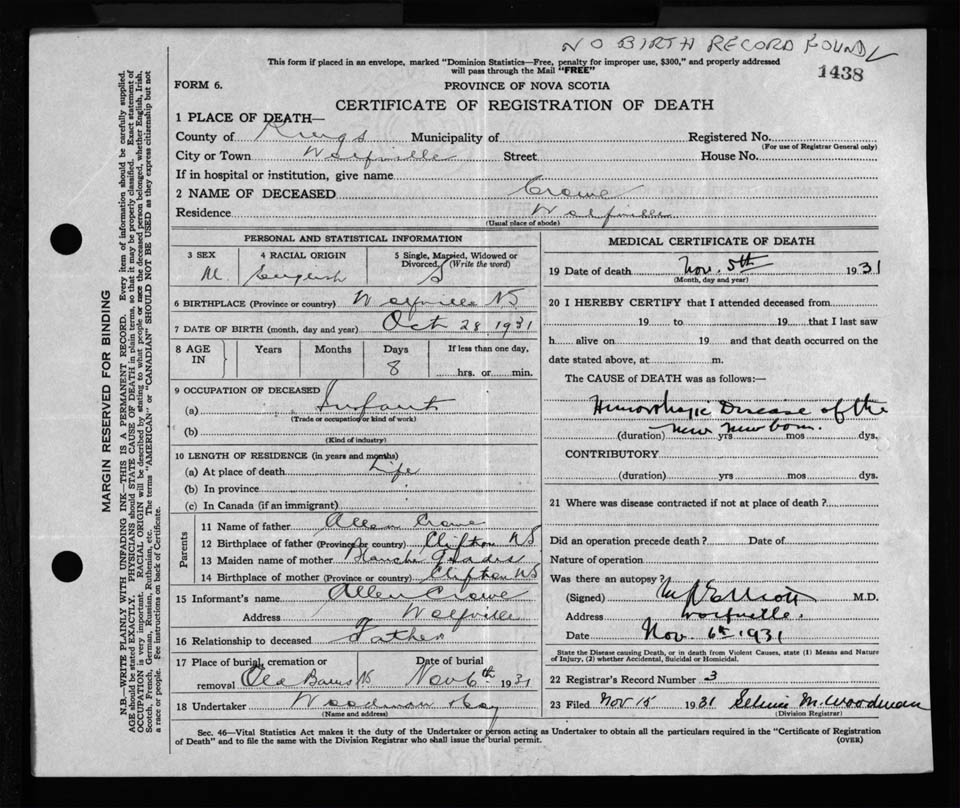 NO BIRTH RECORD FOUND
This form if placed in an envelope, marked “Dominion Statistics—Free, penalty for improper use, $300,” and properly addressed
will pass through the Mail “FREE”
1438
FORM 6.
PROVINCE OF NOVA SCOTIA
CERTIFICATE OF REGISTRATION OF DEATH
1 PLACE OF DEATH—
County of Kings Municipality of
Registered No.
(For use of Registrar General only)
City or Town Wolfville Street
House No.
If in hospital or institution, give name
2 NAME OF DECEASED Crowe
Residence Wolfville
(Usual place of abode)
PERSONAL AND STATISTICAL INFORMATION
3 SEX
4 RACIAL ORIGIN
5 Single, Married, Widowed or
Divorced (Write the word)
M. English S
6 BIRTHPLACE (Province or country) Wolfville NS
7 DATE OF BIRTH (month, day and year) Oct 28 1931
8 AGE
IN
Years Months Days If less than one day,
8 hrs. or min.
9 OCCUPATION OF DECEASED
(a) Infant
(Trade or occupation or kind of work)
(b)
(Kind of industry)
10 LENGTH OF RESIDENCE (in years and months)
(a) At place of death Life
(b) In province
(c) In Canada (if an immigrant)
Parents
11 Name of father Allen Crowe
12 Birthplace of father (Province or country) Clifton NS
13 Maiden name of mother Blanche
14 Birthplace of mother (Province or country) Clifton NS
15 Informant's name Allen Crowe
Address Wolfville
16 Relationship to deceased Father
17 Place of burial, cremation or
removal Old Barns NS
Date of burial
Nov 6th 1931
18 Undertaker Woodman
(Name and address)
MEDICAL CERTIFICATE OF DEATH
19 Date of death Nov. 5th 1931
(Month, day and year)
20 I HEREBY CERTIFY that I attended deceased from
19 to 19 that I last saw
h alive on 19 and that death occurred on the
date stated above, at m.
The CAUSE of DEATH was as follows:—
Hemorrhagic Disease of the
new newborn.
(duration) yrs mos dys.
CONTRIBUTORY
(duration) yrs mos dys.
21 Where was disease contracted if not at place of death?
Did an operation precede death? Date of
Nature of operation
Was there an autopsy?
(Signed) Elliott M.D.
Address Wolfville.
Date Nov. 6th 1931
State the Disease causing Death, or in death from Violent Causes, state (1) Means and Nature
of Injury, (2) whether Accidental, Suicidal or Homicidal.
22 Registrar's Record Number 3
23 Filed Nov 15 1931 M. Woodman
(Division Registrar)
Sec. 46—Vital Statistics Act makes it the duty of the Undertaker or person acting as Undertaker to obtain all the particulars required in the “Certificate of Registration
of Death” and to file the same with the Division Registrar who shall issue the burial permit.
(OVER)
MARGIN RESERVED FOR BINDING
N.B.—WRITE PLAINLY WITH UNFADING INK—THIS IS A PERMANENT RECORD. Every item of information should be carefully supplied.
AGE should be stated EXACTLY. PHYSICIANS should STATE CAUSE OF DEATH in plain terms, so that it may be properly classified. Exact statement of
OCCUPATION is very important. RACIAL ORIGIN will be described by stating to what people or race the deceased person belonged, whether English, Irish,
Scotch, French, German, Russian, Ruthenian, etc. The terms “AMERICAN” or “CANADIAN” SHOULD NOT BE USED as they express citizenship but not
a race or people. Fee instructions on back of Certificate.